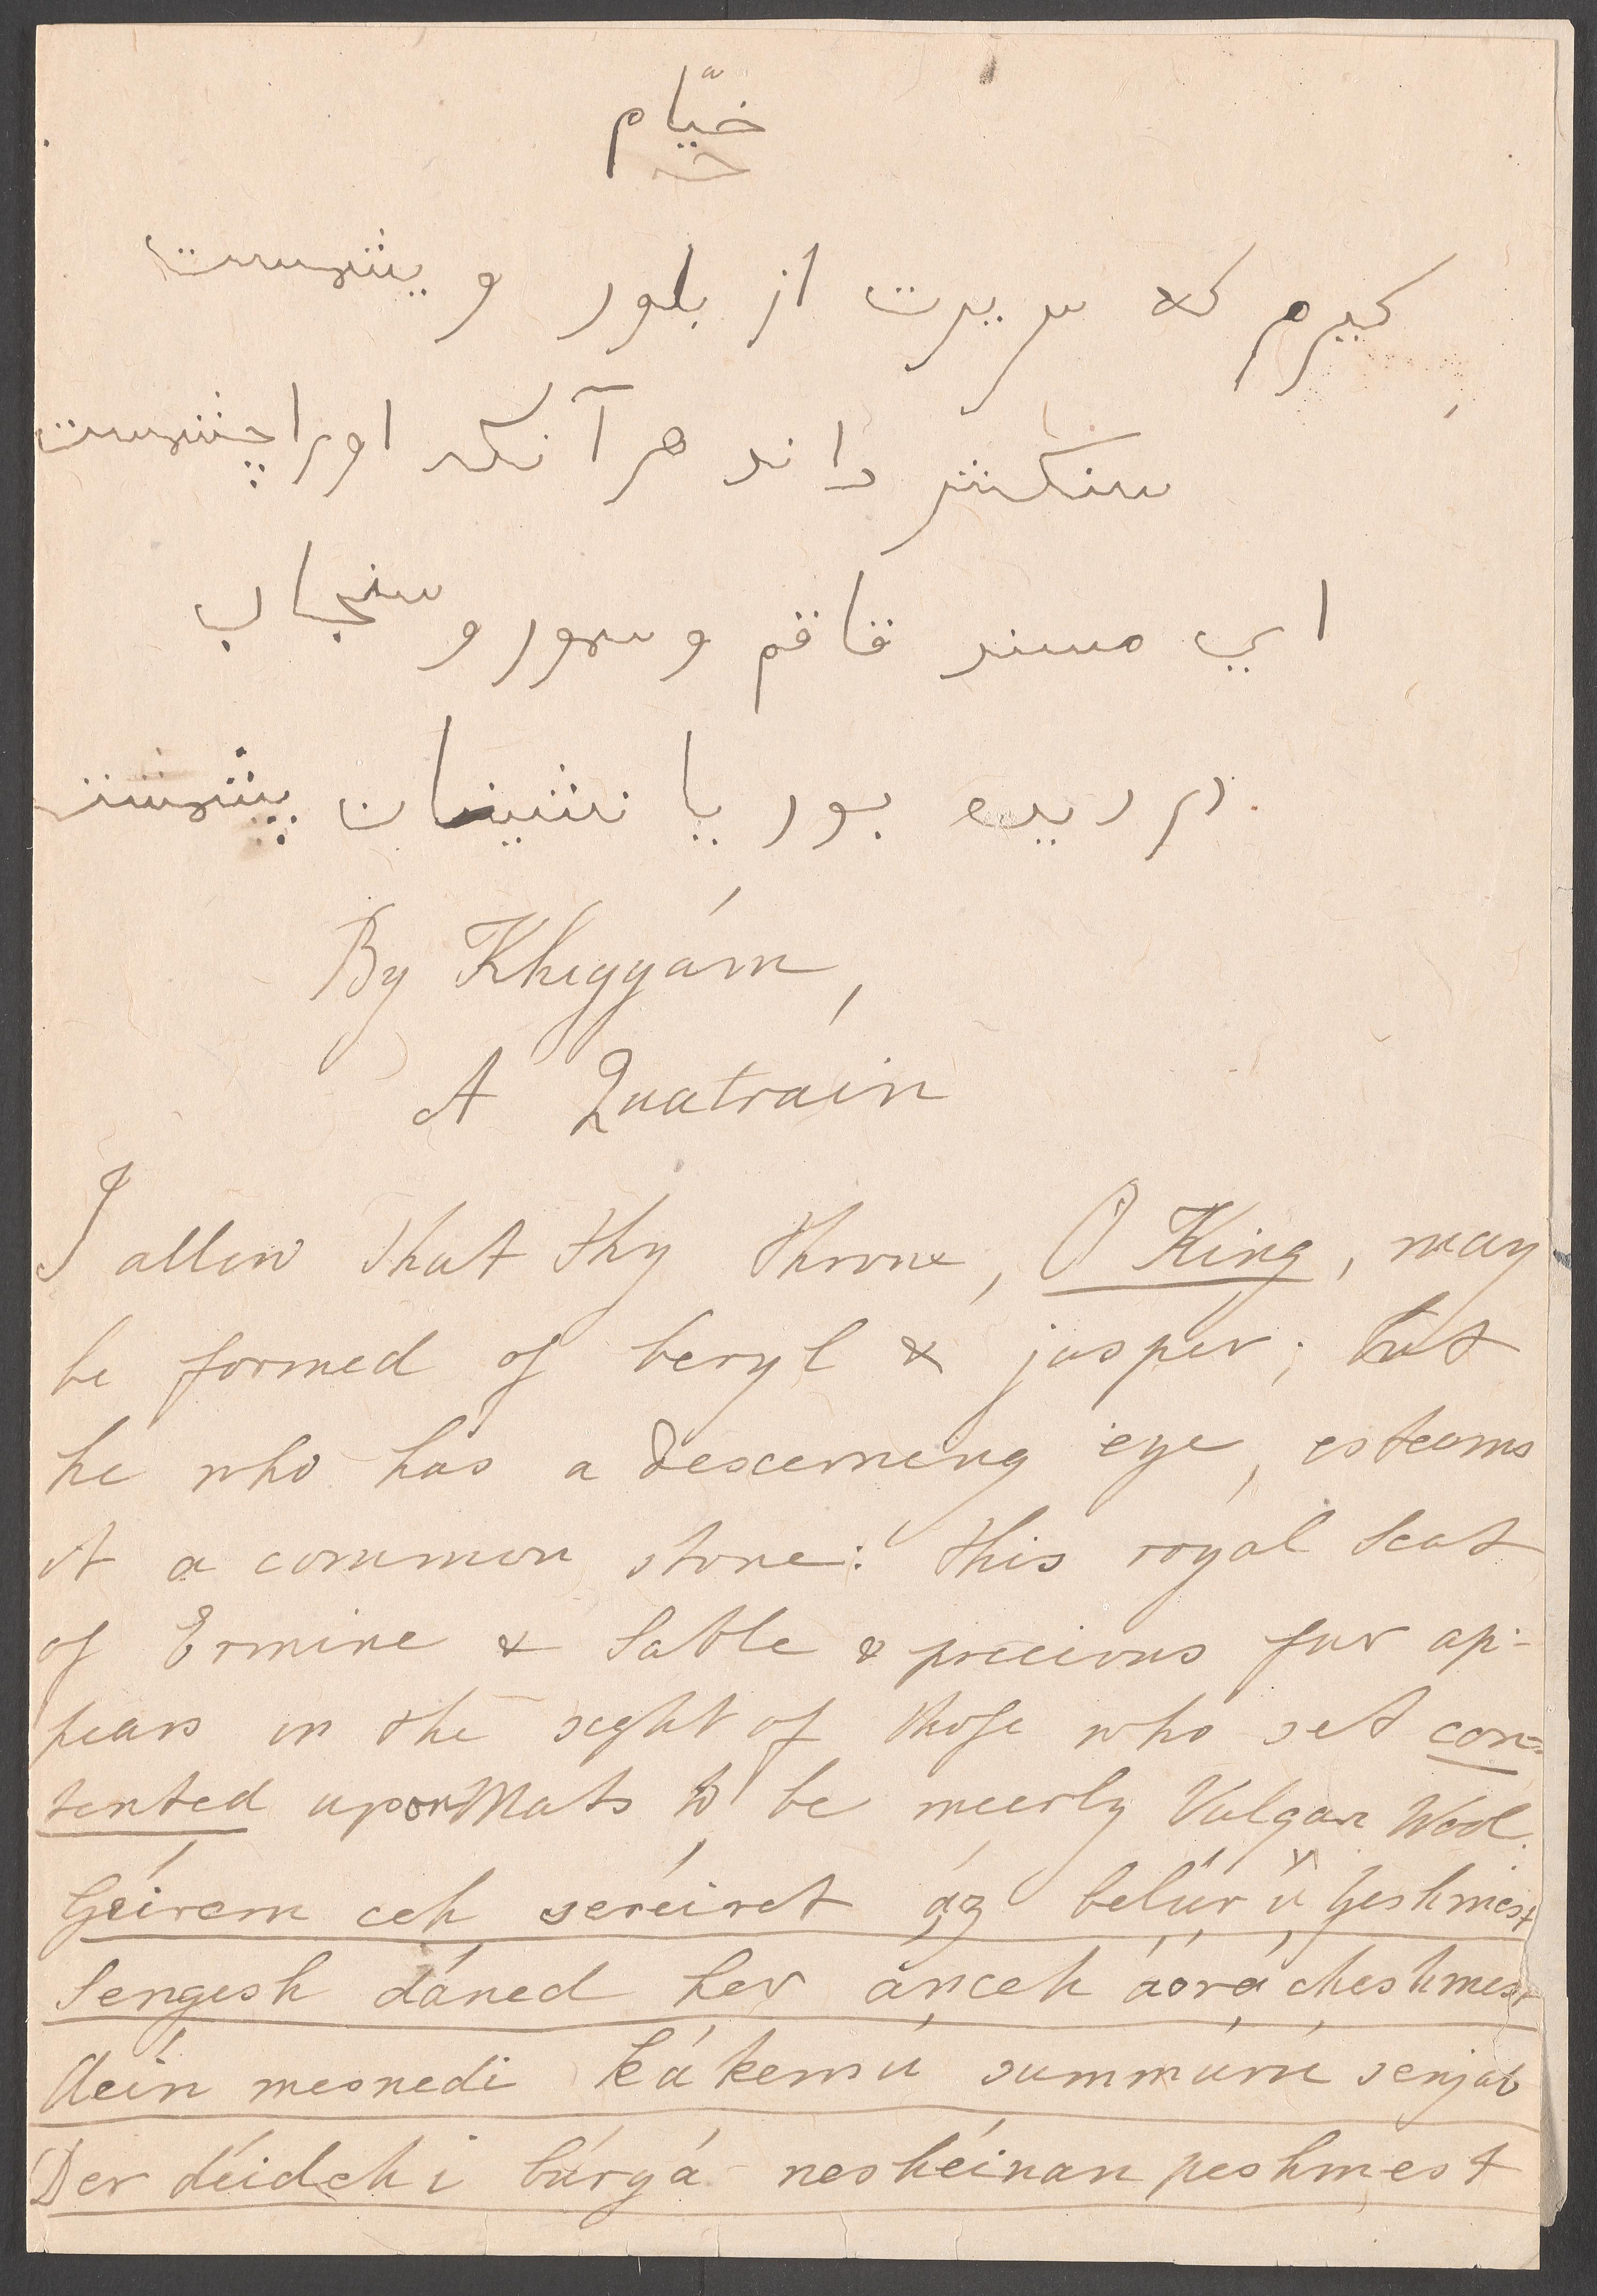 خيّام
كيرم كه سريرت از بلور و يشمست
سنكش داند هر آنكه اوراچشمست
اي مسند قاقم و سمور و سنجاب
در ديده بوريا نشينان پشمست
By Khiyyám,
A Quatrain
I allow that thy throne, O King, may
be formed of beryl & jasper; but
he who has a descerning eye, esteems
it a common stone: this royal Seat
of Ermine & Sable & precious fur ap-
pears in the sight of those who set con=
tented upon Mats to be meerly Vulgar Wool.
Geírem ceh seréiret áz belúr ú yeshmest
Sengesh dáned her ánceh áorá cheshmest
Aeín mesnedi kákemú summúrú senjab
Der déideh i búryá neshéinan peshmest